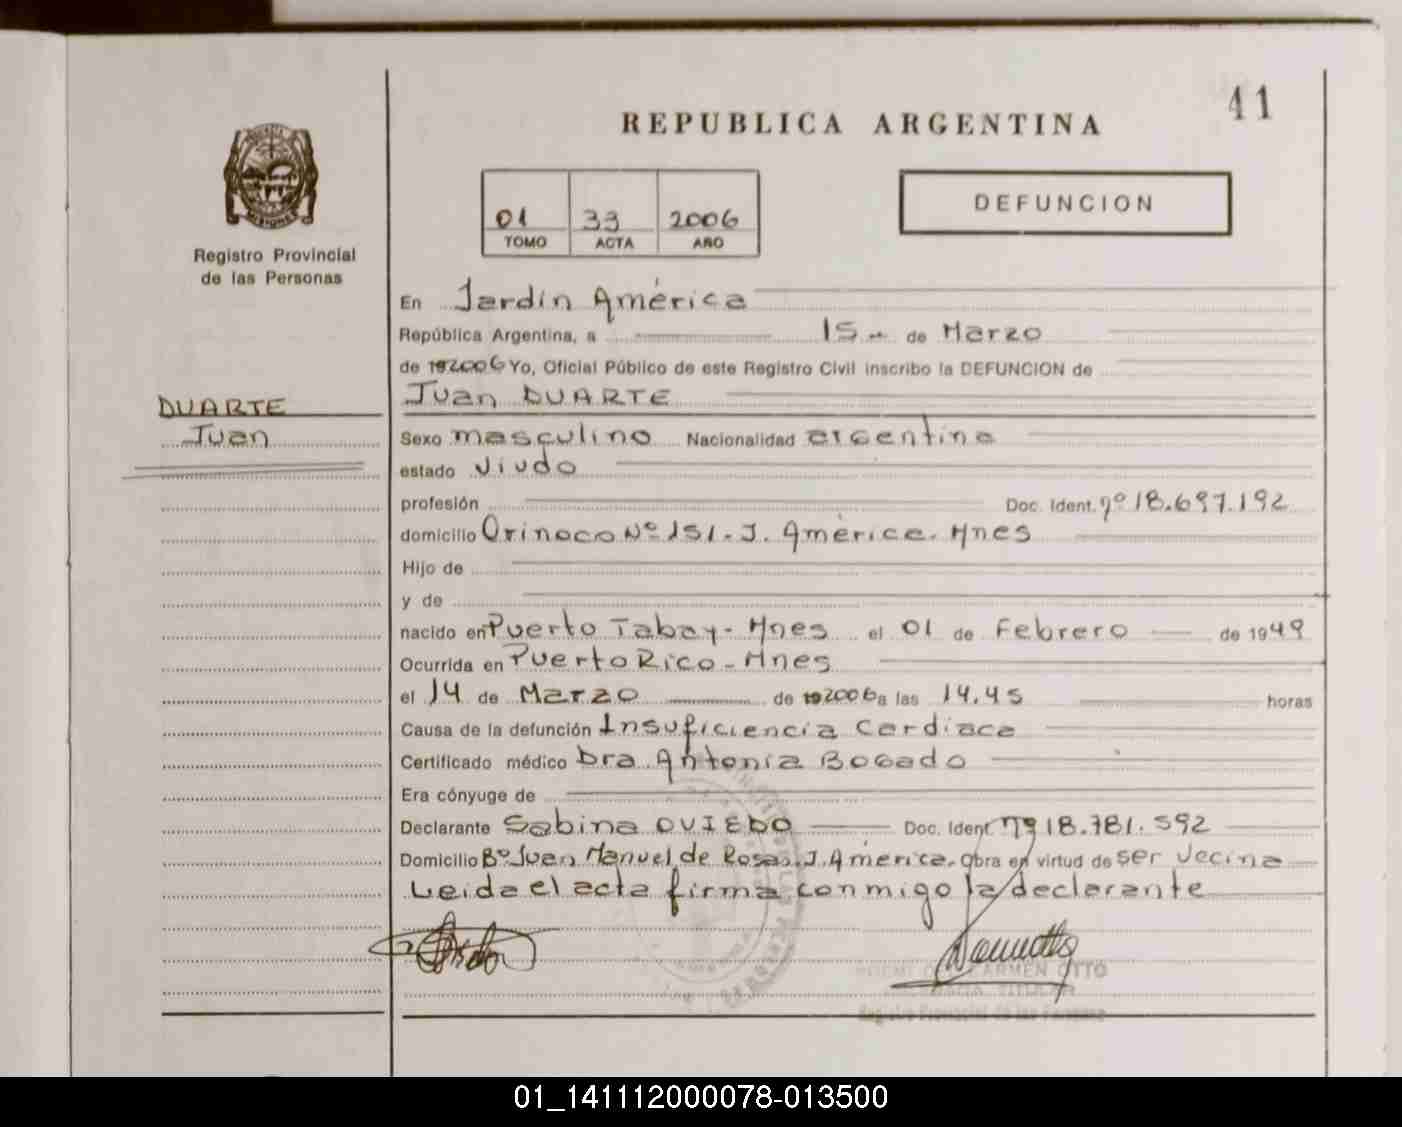 41
REPUBLICA ARGENTINA
MISIONES
Registro Provincial
de las Personas
01 33 2006
TOMO ACTA AÑO
DEFUNCION
En Jardín América
República Argentina, a 15 de Marzo
de 192006 Yo, Oficial Público de este Registro Civil inscribo la DEFUNCION de
Juan DUARTE
DUARTE
Juan
Sexo masculino Nacionalidad argentina
estado viudo
profesión Doc. Ident. nº 18.697.192
domicilio Orinoco Nº 151.- J. América. Mnes
Hijo de
y de
nacido en Puerto Tabay - Mnes el 01 de Febrero de 1949
Ocurrida en Puerto Rico - Mnes
el 14 de Marzo de 192006 a las 14.45 horas
Causa de la defunción Insuficiencia Cardiaca
Certificado médico Dra. Antonia Bogado
Era cónyuge de
Declarante Sabina OVIEDO Doc. Ident. nº 18.781.592
Domicilio Bº Juan Manuel de Rosas. J. América. Obra en virtud de ser vecina
Leida el acta firma conmigo la declarante
CARMEN OTTO
TITULAR
Registro Provincial de las Personas
01_141112000078-013500